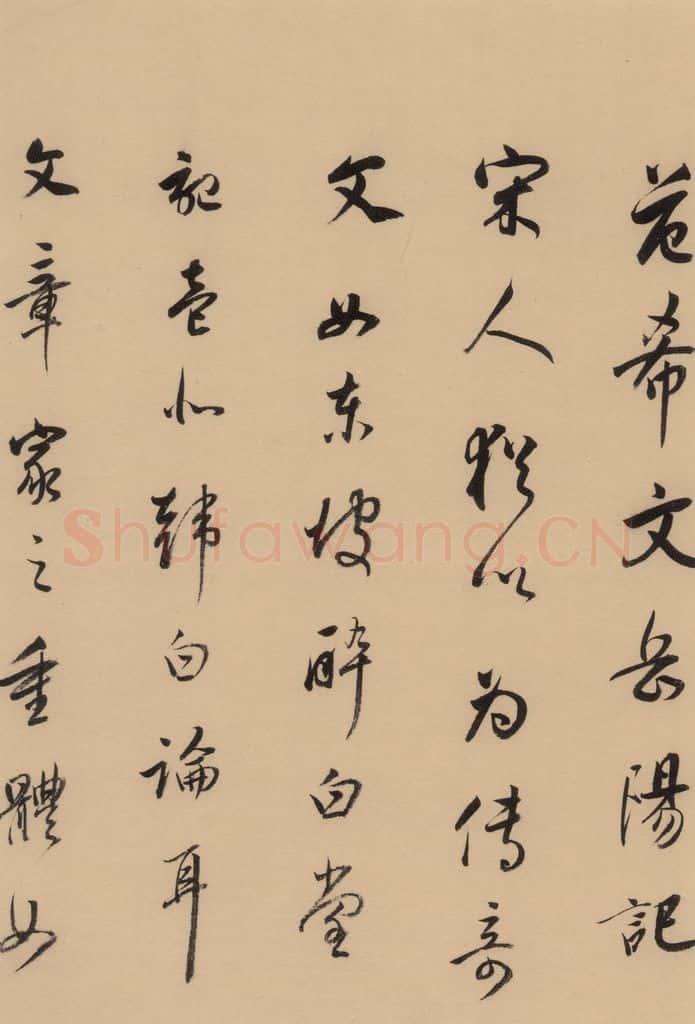 范希文岳陽記
宋人猶以為傳奇
文如東坡醉白堂
記韓白論耳
文章家之重體如
Shufawang.CN